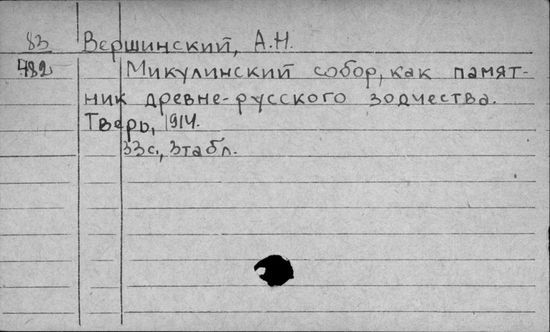 83 Вершинский, А.Н.
482 Микулинский собор, как памят-
ник древне-русского зодчества.
Тверь, 1914.
33с., 3табл.